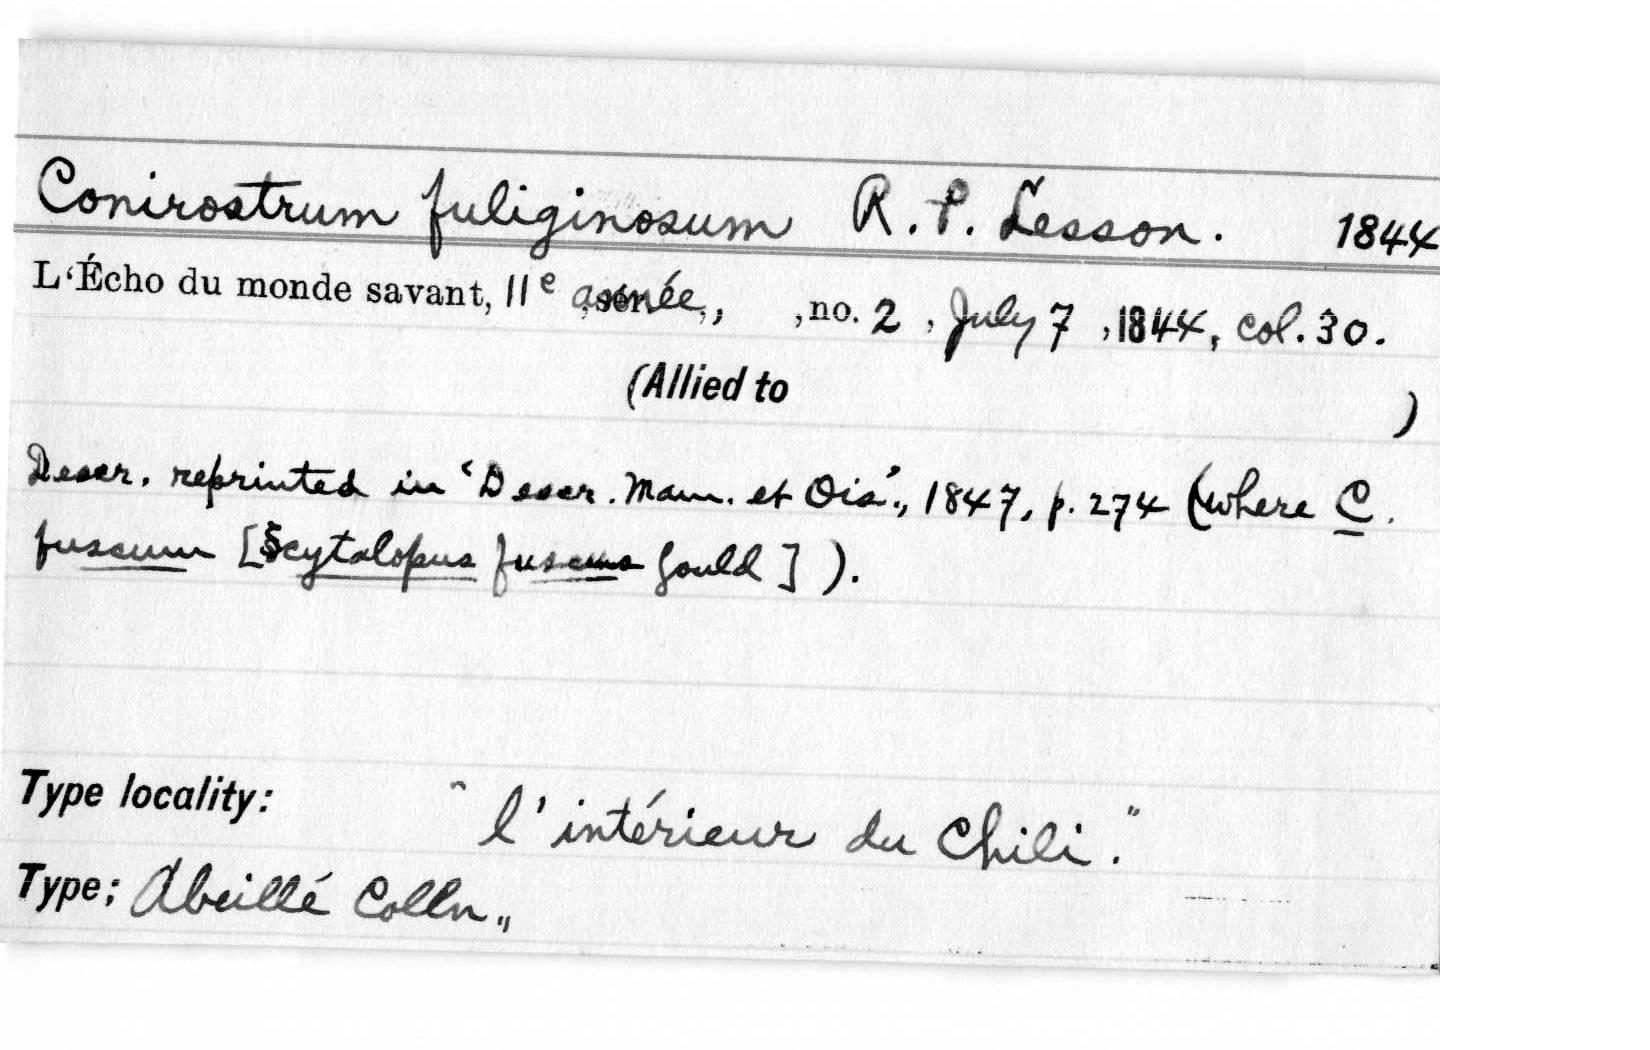 Conirostrum fuliginosum R. P. Lesson. 1844
L‘Écho du monde savant, 11e année,, ,no. 2 , July 7 ,1844, col. 30.
(Allied to )
Descr. reprinted in ‘Descr. Mam. et Ois’., 1847, p. 274 (where C.
fuscum [Scytalopus fuscus Gould] ).
Type locality: "l'intérieur du Chili."
Type: Abeillé Colln.,